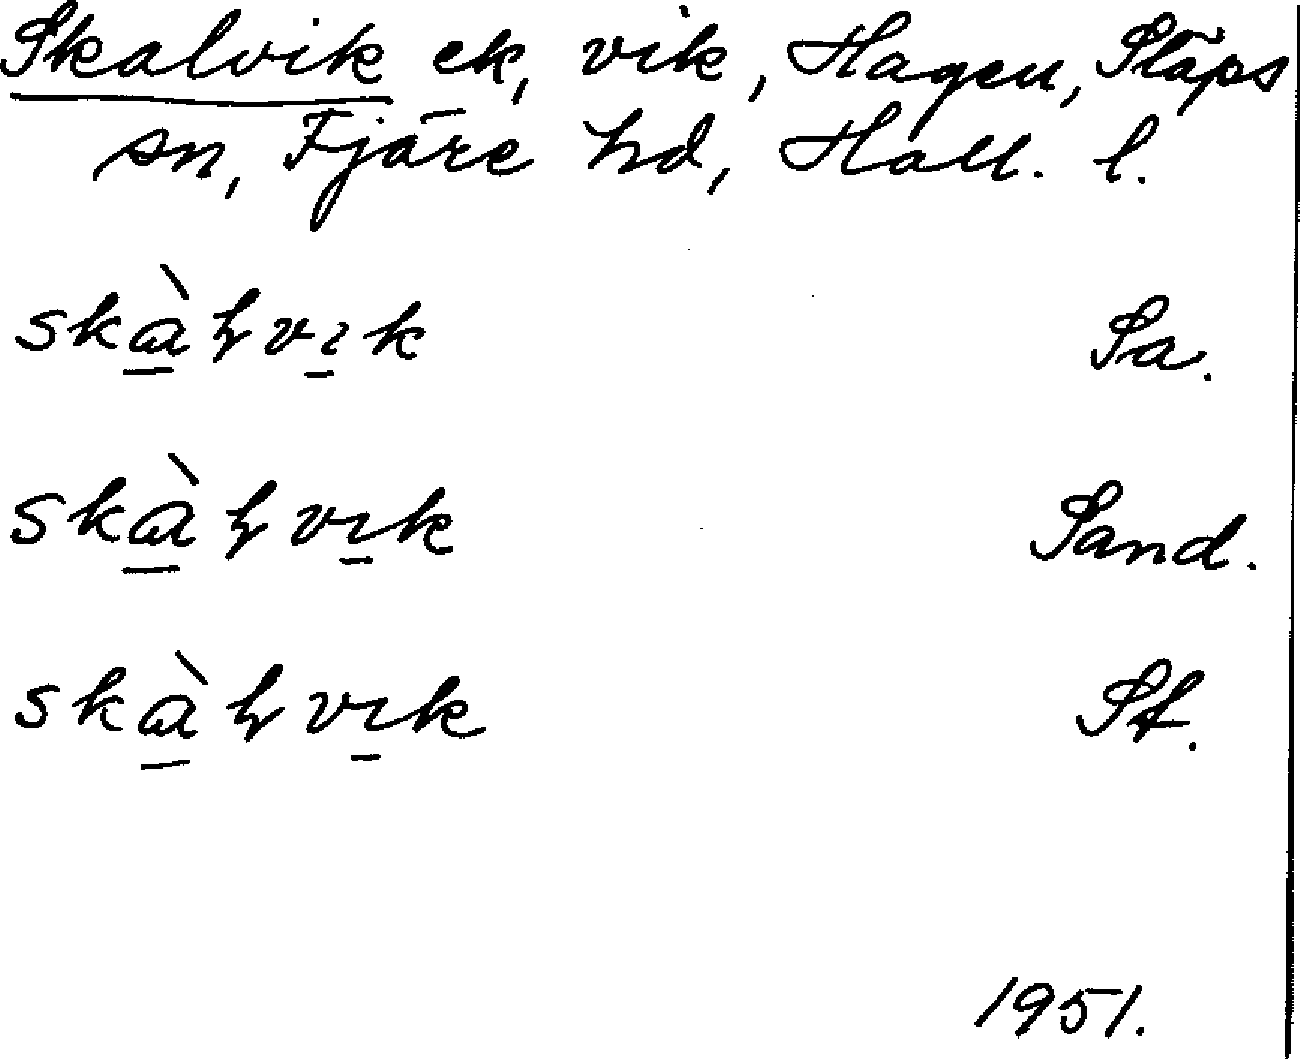 Skalvik ek, vik, Hagen, Släps
sn, Fjäre hd, Hall. l.
skɑ̠̀ɫvı̠k Sa.
skɑ̠̀ɫvı̠k Sand.
skɑ̠̀ɫvı̠k Sf.
1951.